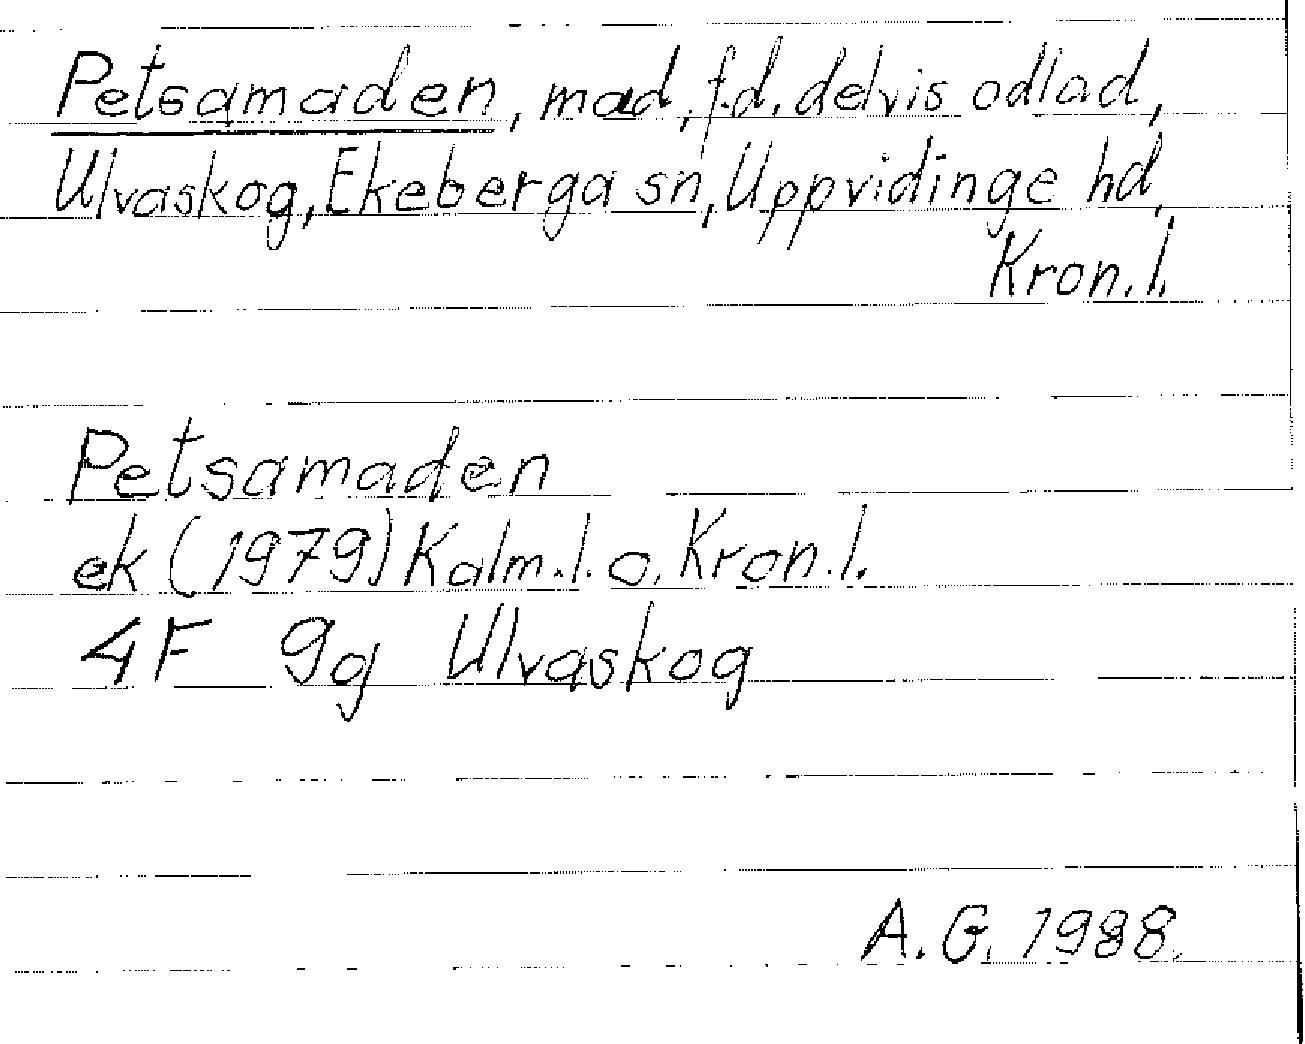 Petsamaden, mad, f.d. delvis odlad,
Ulvaskog, Ekeberga sn, Uppvidinge hd,
Kron.l.
Petsamaden
ek (1979) Kalm.l. o. Kron.l.
4F 9g Ulvaskog
A.G. 1988.